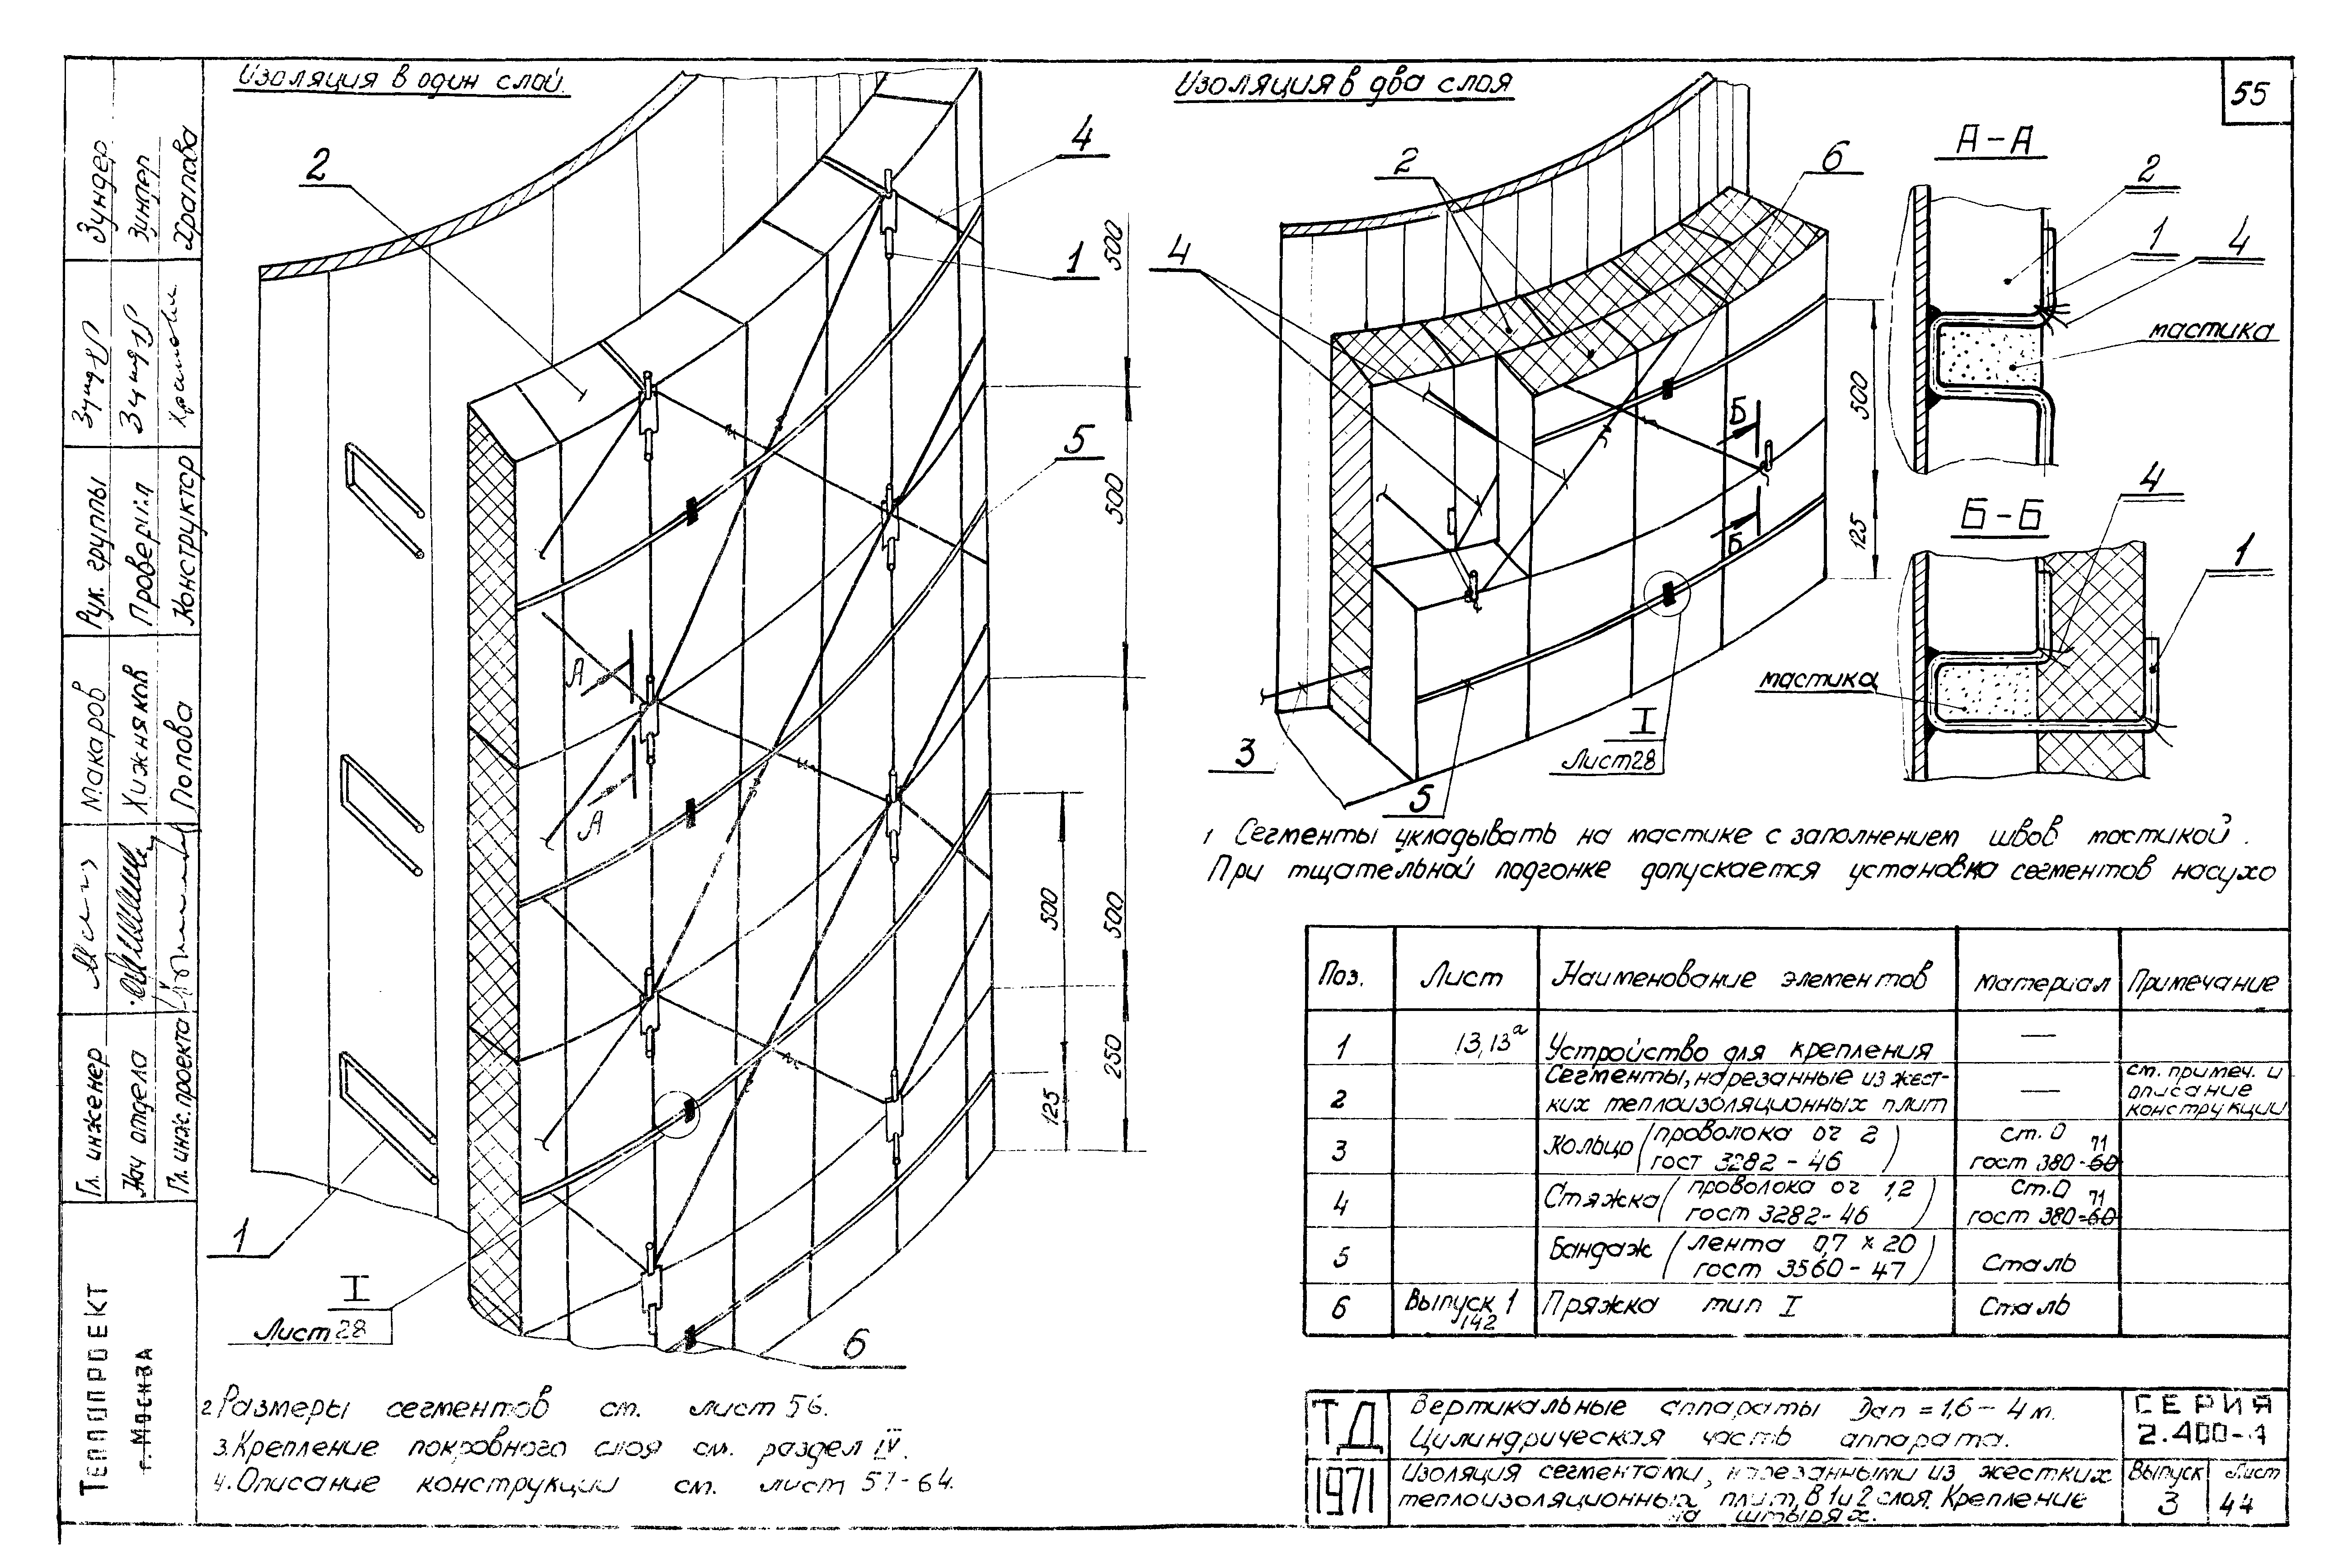 Изоляция в один слой.
2
4
1
500
500
5
500
500
250
125
А
А
1
I
Лист 28
6
Изоляция в два слоя
55
2
6
4
Б
Б
500
125
3
I
Лист 28
5
А-А
2
1
4
мастика
Б-Б
4
1
мастика
1 Сегменты укладывать на мастике с заполнением швов мастикой.
При тщательной подгонке допускается установка сегментов насухо
Поз. Лист Наименование элементов Материал Примечание
1 13,13а Устройство для крепления —
2 Сегменты, нарезанные из жест- — см. примеч. и
ких теплоизоляционных плит описание
конструкции
3 Кольцо (проволока оч 2 ст. 0
гост 3282-46) гост 380-60 71
4 Стяжка (проволока оч 1,2 Ст.0
гост 3282-46) гост 380-60 71
5 Бандаж (лента 0,7 х 20
гост 3560-47) Сталь
6 Выпуск 1 Пряжка тип I Сталь
142
2 Размеры сегментов см. лист 56.
3. Крепление покровного слоя см. раздел IV.
4. Описание конструкции см. лист 57-64.
ТД
1971
Вертикальные аппараты Dап = 1,6 – 4 м.
Цилиндрическая часть аппарата.
Изоляция сегментами, нарезанными из жестких
теплоизоляционных плит, в 1 и 2 слоя. Крепление
на штырях.
СЕРИЯ
2.400-4
Выпуск Лист
3 44
Теплопроект
г. Москва
Гл. инженер Макаров
Нач отдела Хижняков
Гл. инж. проекта Попова
Рук. группы Зундер
Проверил Зундер
Конструктор Храпова